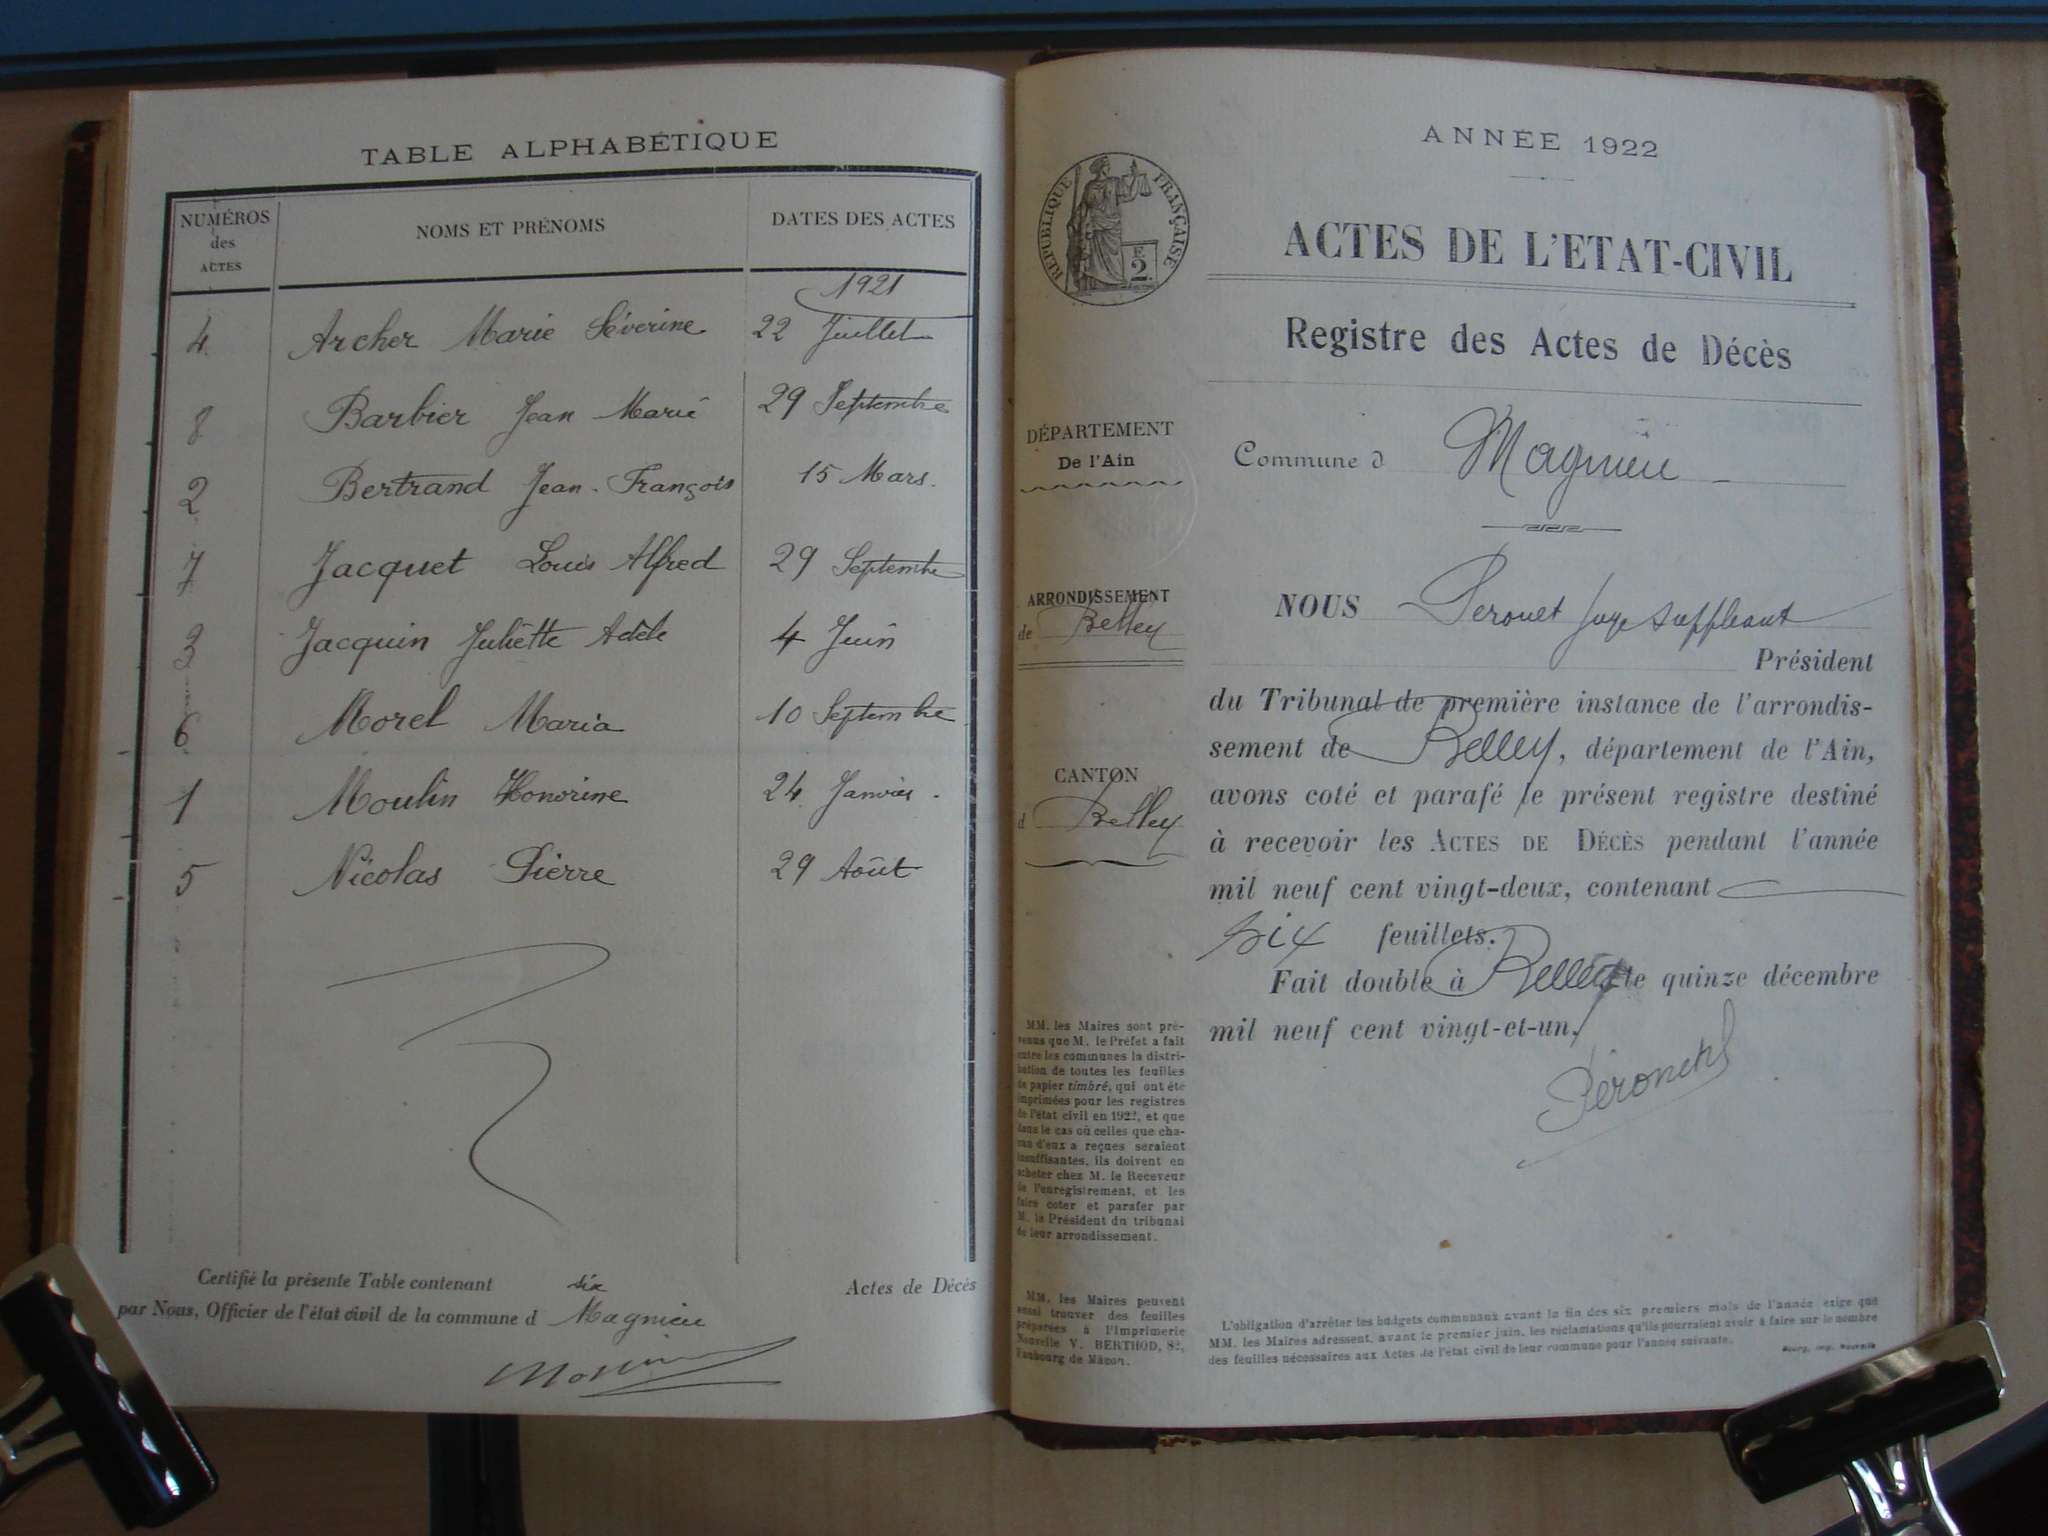 TABLE ALPHABÉTIQUE
NUMÉROS des ACTES
NOMS ET PRÉNOMS
DATES DES ACTES
1921
4 Archer Marie Séverine 22 Juillet
8 Barbier Jean Marie 29 Septembre
2 Bertrand Jean-François 15 Mars.
7 Jacquet Louis Alfred 29 Septembre
3 Jacquin Juliette Adèle 4 Juin
6 Morel Maria 10 Septembre
1 Moulin Honorine 24 Janvier.
5 Nicolas Pierre 29 Août
Certifié la présente Table contenant six Actes de Décès
par Nous, Officier de l'état civil de la commune d Magnieu
ANNÉE 1922
RÉPUBLIQUE FRANÇAISE
F. 2.
ACTES DE L'ETAT-CIVIL
Registre des Actes de Décès
DÉPARTEMENT
De l'Ain
ARRONDISSEMENT
de Belley
CANTON
d Belley
MM. les Maires sont pré-
venus que M. le Préfet a fait
entre les communes la distri-
bution de toutes les feuilles
de papier timbré, qui ont été
imprimées pour les registres
de l'état civil en 1922, et que
dans le cas où celles que cha-
cun d'eux a reçues seraient
insuffisantes, ils doivent en
acheter chez M. le Receveur
de l'enregistrement, et les
faire coter et parafer par
M. le Président du tribunal
de leur arrondissement.
MM. les Maires peuvent
aussi trouver des feuilles
préparées à l'Imprimerie
Nouvelle V. BERTHOD, 82,
Faubourg de Mâcon.
Commune d Magnieu
NOUS Juge suppléant
Président
du Tribunal de première instance de l'arrondis-
sement de Belley, département de l'Ain,
avons coté et parafé le présent registre destiné
à recevoir les ACTES DE DÉCÈS pendant l'année
mil neuf cent vingt-deux, contenant
six feuillets.
Fait double à Belley le quinze décembre
mil neuf cent vingt-et-un.
L'obligation d'arrêter les budgets communaux avant la fin des six premiers mois de l'année exige que
MM. les Maires adressent, avant le premier juin, les réclamations qu'ils pourraient avoir à faire sur le nombre
des feuilles nécessaires aux Actes de l'état civil de leur commune pour l'année suivante.
Bourg, imp. Nouvelle